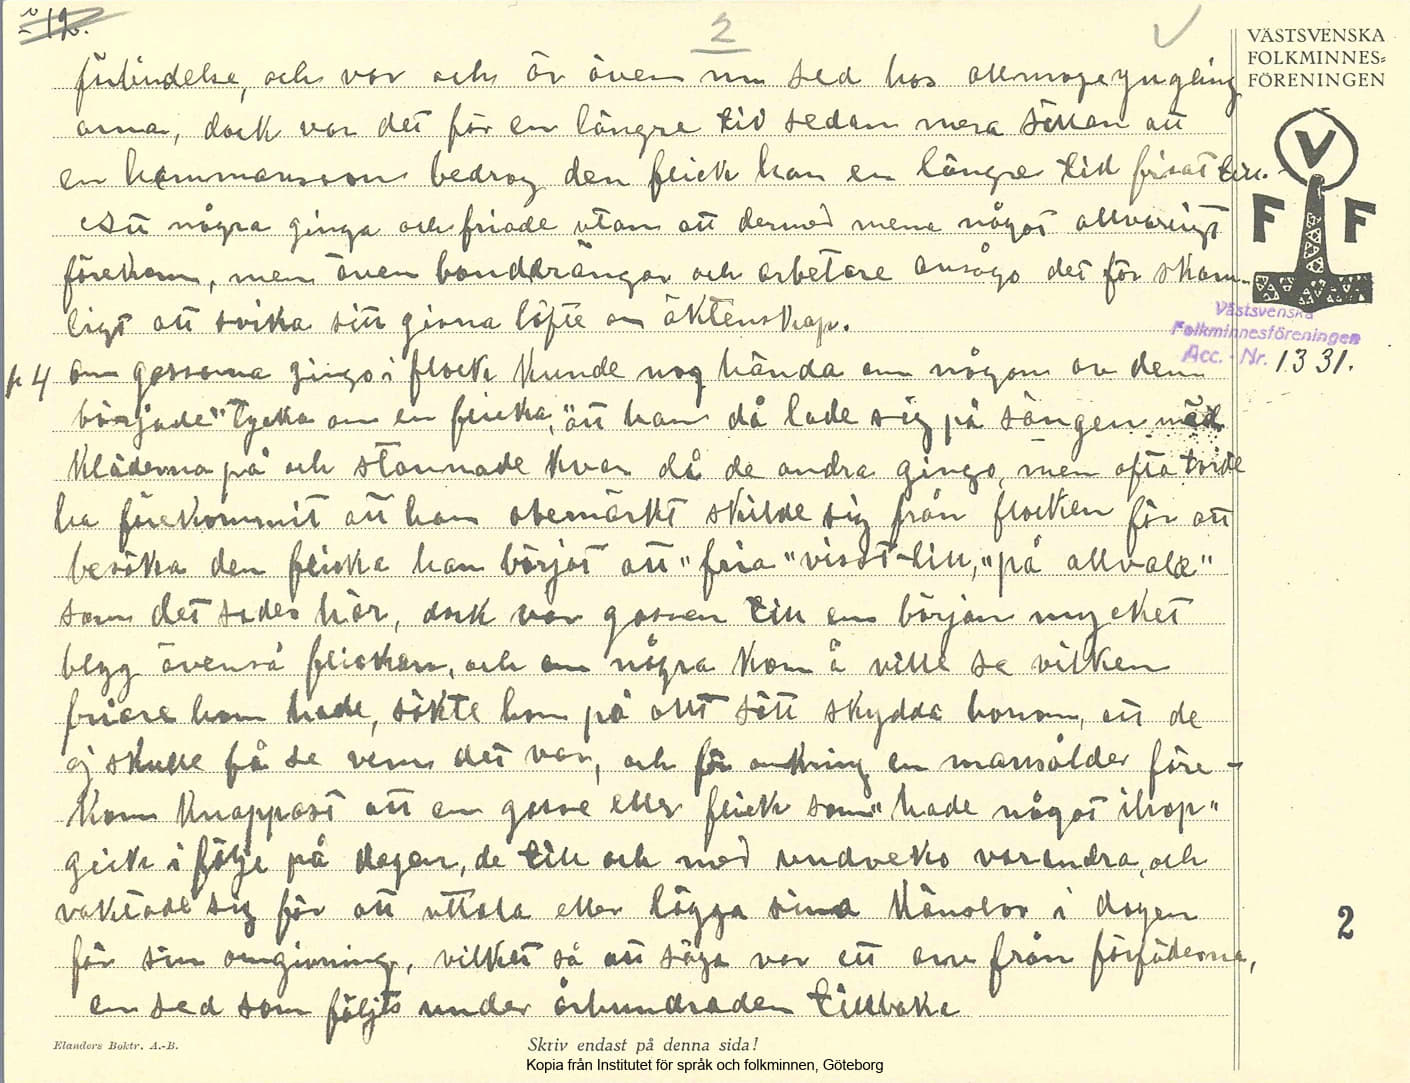 12.
2
VÄSTSVENSKA
FOLKMINNES=
FÖRENINGEN
V
F F
Västsvenska
Folkminnesföreningen
Acc. - Nr. 1331.
förbindelse, och var och är även nu sed hos allmogeyngling
arna, dock var det för en längre tid sedan mera sällan att
en hemmansson bedrog den flick han en längre tid friat till.
Att några ginga och friade utan att dermed mena något allvarligt
förekom, men även bonddrängar och arbetare ansågo det för skam-
ligt att svika sitt givna löfte om äktenskap.
p 4 om gossarna gingo i flock kunde nog hända om någon av dem
började "tycka om en flicka," att han då lade sig på sängen med
kläderna på och stannade kvar då de andra gingo, men ofta torde
ha förekommit att han obemärkt skilde sig från flocken för att
besöka den flicka han börjat att "fria" visst till, "på allvale"
som det sades här, dock var gossen till en början mycket
blyg ävenså flickan, och om några kom å ville se vilken
friare hon hade, sökte hon på allt sätt skydda honom, att de
ej skulle få se vem det var, och för omkring en mansålder före-
kom knappast att en gosse eller flick som "hade något ihop"
gick i följe på dagen, de till och med undveko varandra, och
vaktade sig för att uttala eller lägga sina känslor i dagen
för sin omgivning, vilket så att säga var ett arv från förfäderna,
en sed som följts under århundraden tillbaka
2
Elanders Boktr. A.-B.
Skriv endast på denna sida!
Kopia från Institutet för språk och folkminnen, Göteborg